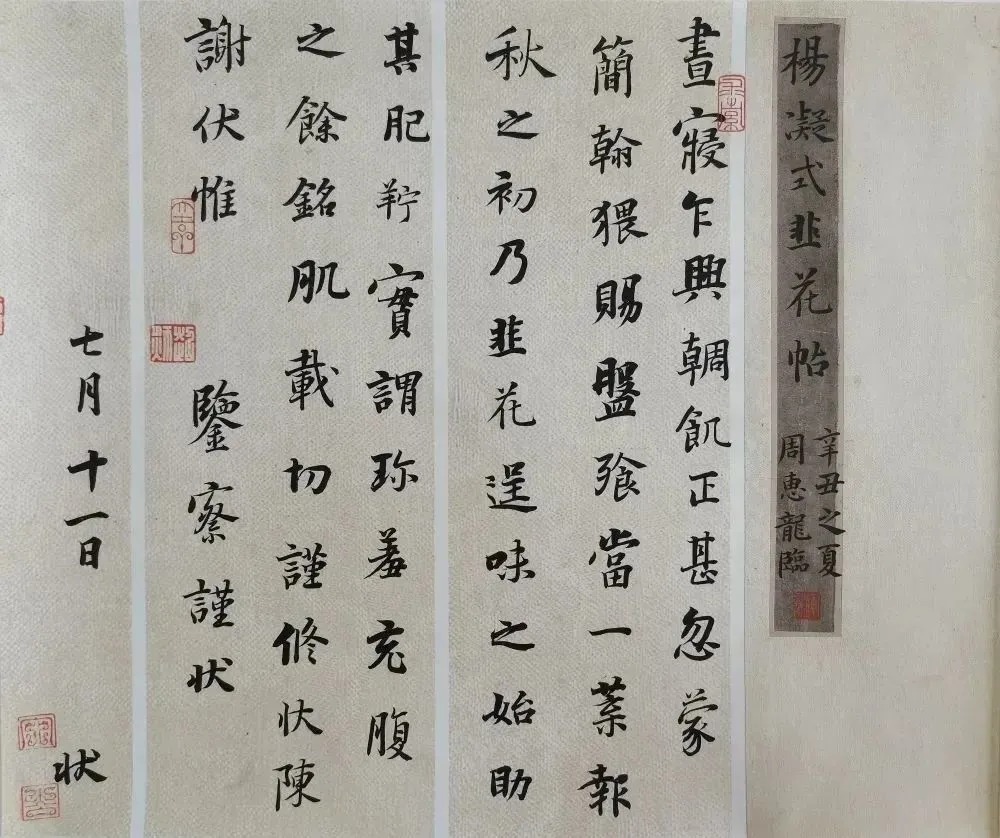 楊凝式韭花帖
辛丑之夏
周惠龍臨
晝寢乍興輖飢正甚忽蒙
簡翰猥賜盤飧當一葉報
秋之初乃韭花逞味之始助
其肥羜實謂珎羞充腹
之餘銘肌載切謹脩状陳
謝伏惟 鑒察謹状
七月十一日
状